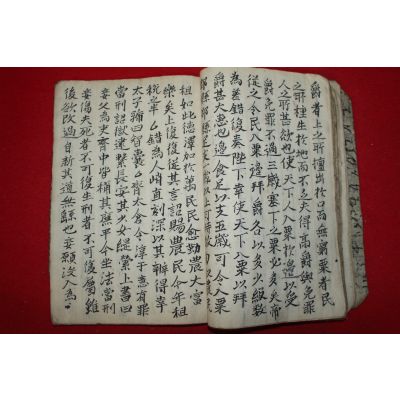 爵者上之所擅出於口而無窮粟者民
之所種生於地而不乏夫得高爵與免罪
人之所甚欲也使天下人入粟於邊以受
爵免罪不過三歲塞下之粟必多矣帝
從之令民入粟邊拜爵各以多少級數
為差錯復奏陛下幸使天下入粟以拜
爵甚大惠也邊食足以支五歲可令入粟
郡縣郡縣足支一歲以上可時赦勿
租如此德澤加於萬民民愈勤農大富
樂矣上復從其言詔賜農民今年租
稅半錯為人峭直刻深以其辯得幸
太子號曰智囊齊太倉令淳于意有罪
當刑詔獄逮繫長安其少女緹縈上書曰
妾父為吏齊中皆稱其廉平今坐法當刑
妾傷夫死者不可復生刑者不可復屬雖
後欲改過自新其道無繇也妾願沒入為